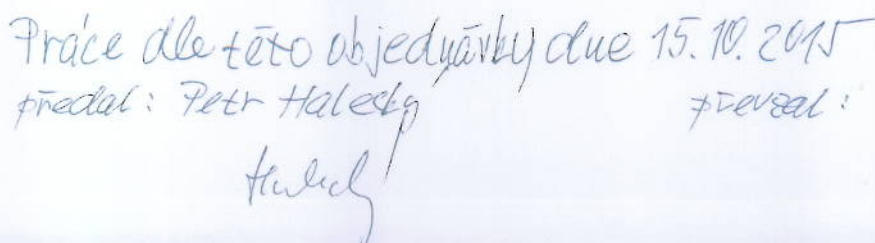 Práce dle této objednávky dne 15.10.2015
předal: Petr Halecký převzal: